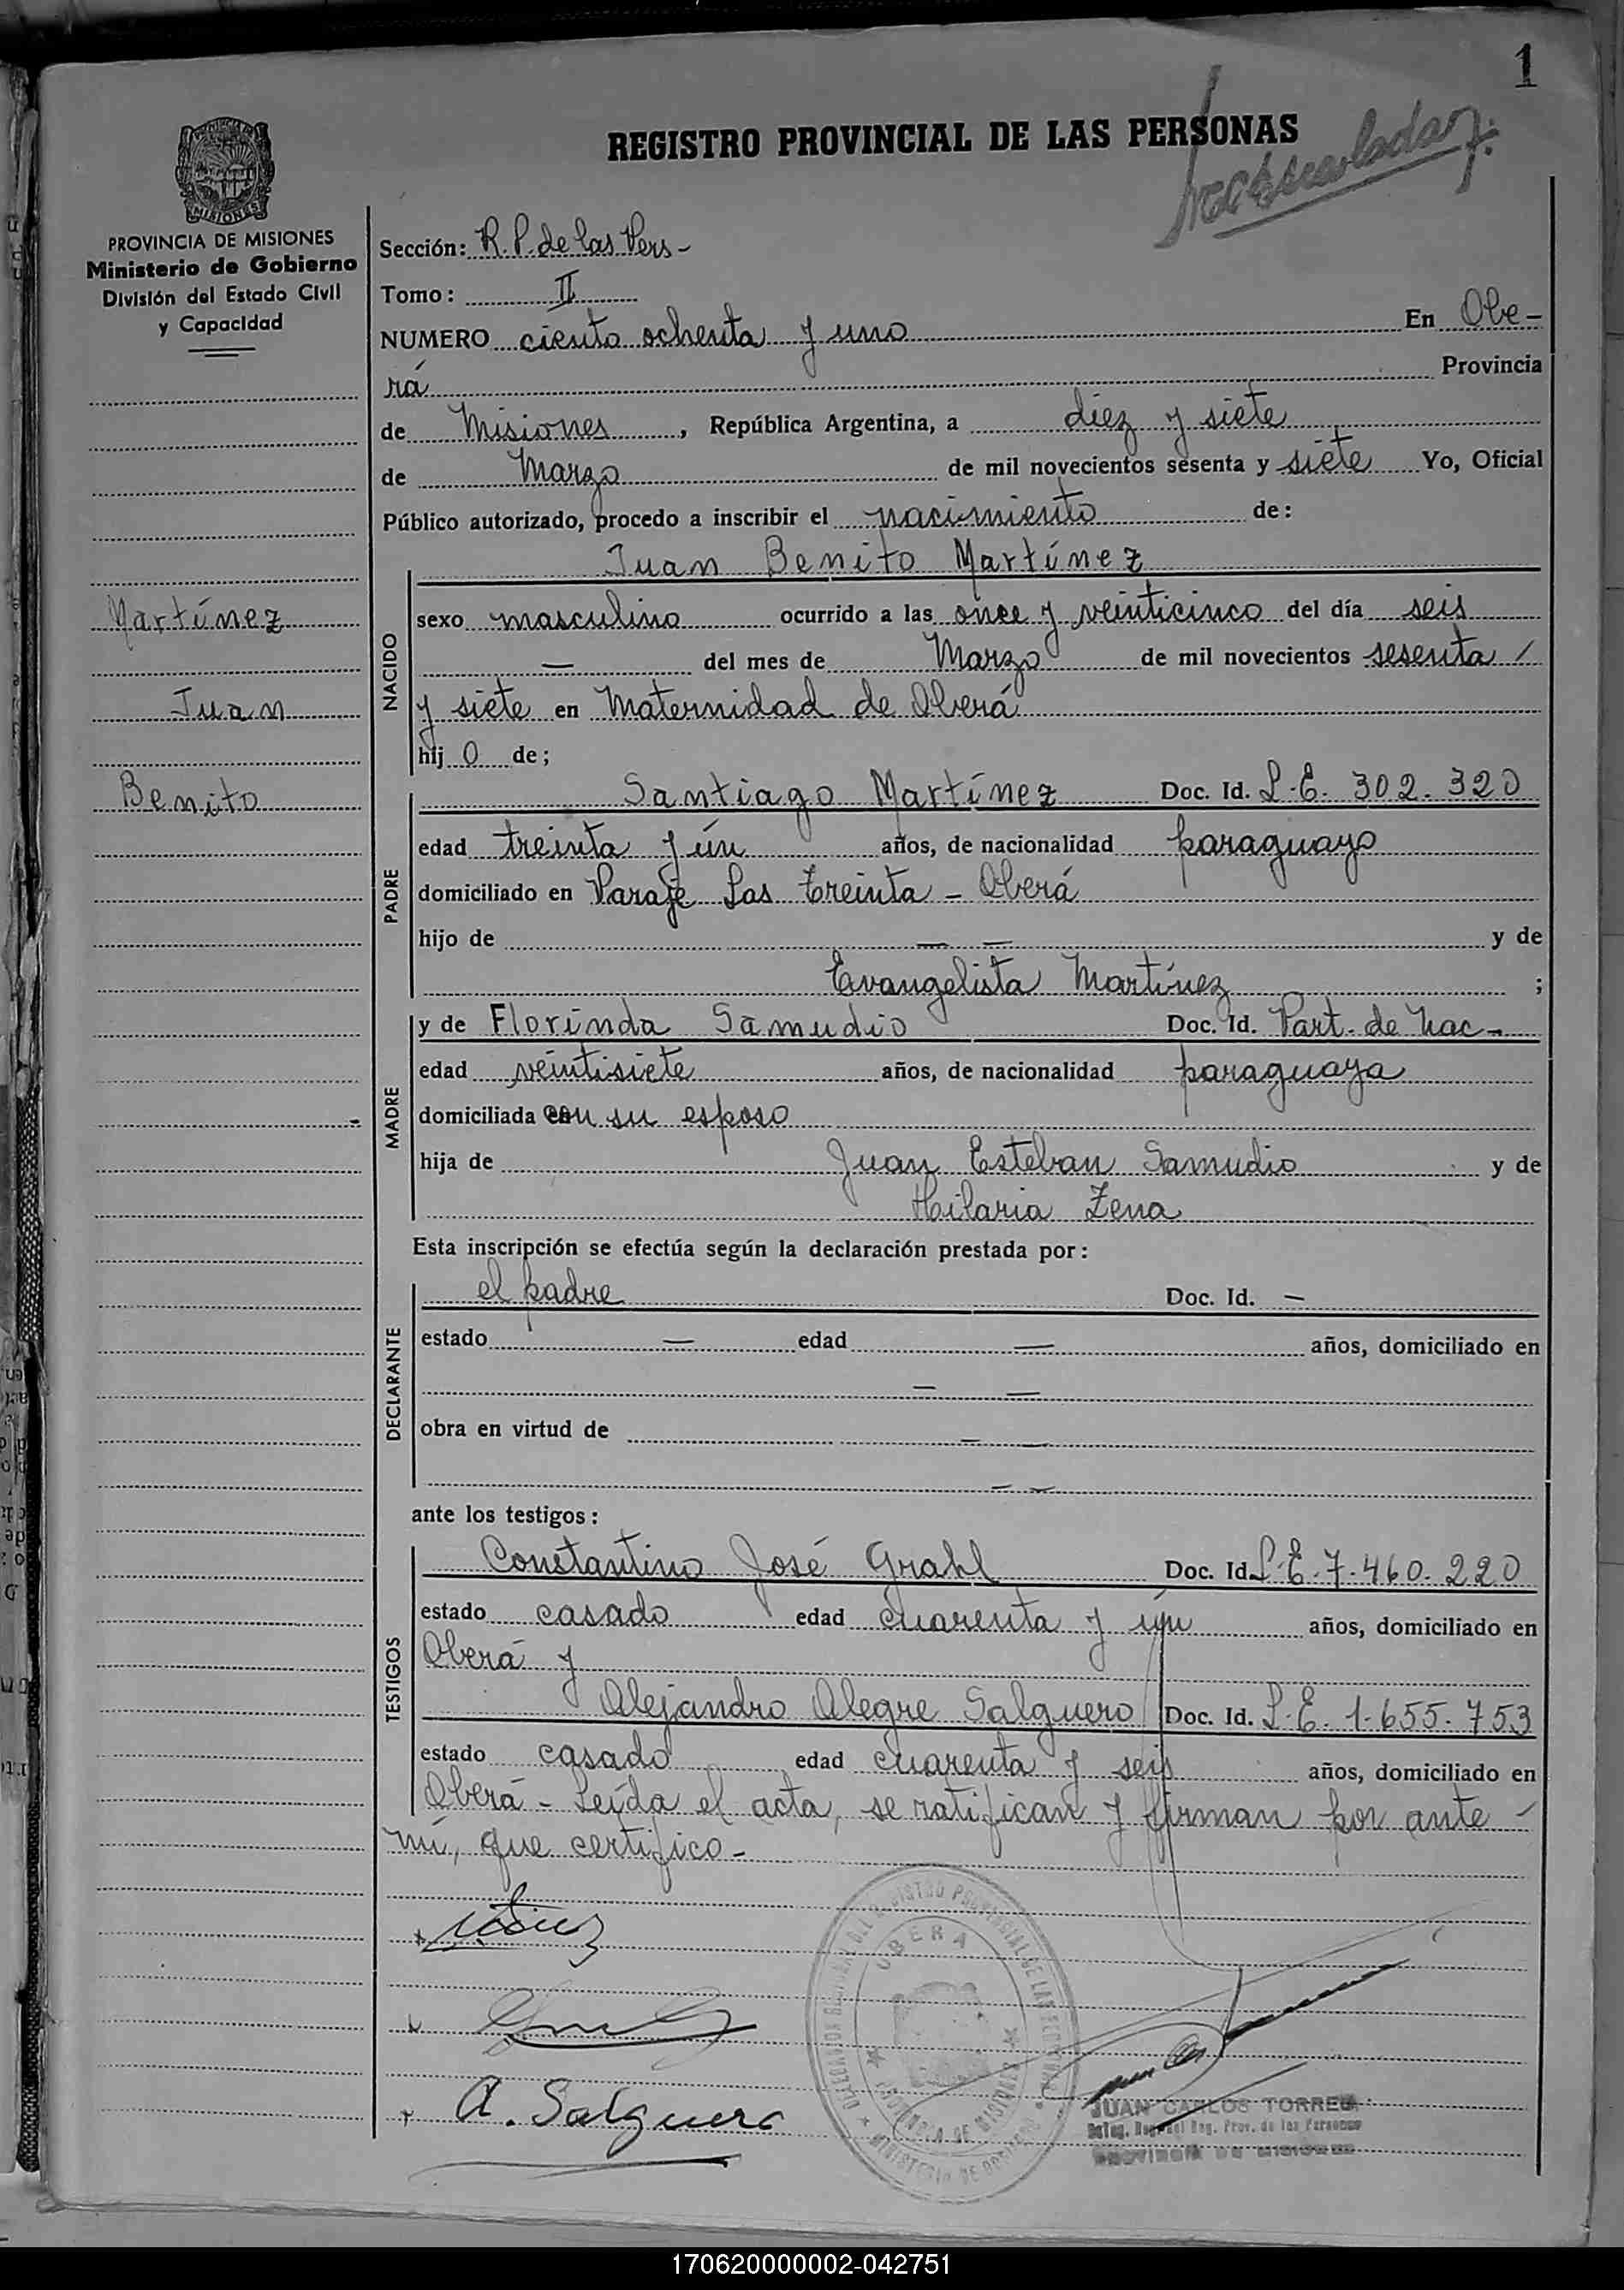 1
REGISTRO PROVINCIAL DE LAS PERSONAS
MISIONES
PROVINCIA DE MISIONES
Ministerio de Gobierno
División del Estado Civil
y Capacidad
Martínez
Juan
Benito
Sección: R. P. de las Pers-
Tomo: II
NUMERO ciento ochenta y uno En Obe-
rá Provincia
de Misiones, República Argentina, a diez y siete
de Marzo de mil novecientos sesenta y siete Yo, Oficial
Público autorizado, procedo a inscribir el nacimiento de:
Juan Benito Martínez
NACIDO
sexo masculino ocurrido a las once y veinticinco del día seis
— del mes de Marzo de mil novecientos sesenta /
y siete en Maternidad de Oberá
hij o de;
PADRE
Santiago Martínez Doc. Id. L.E. 302.320
edad treinta y ún años, de nacionalidad paraguayo
domiciliado en Paraje Las Treinta - Oberá
hijo de — — y de
Evangelista Martínez ;
MADRE
y de Florinda Samudio Doc. Id. Part. de Nac-
edad veintisiete años, de nacionalidad paraguaya
domiciliada con su esposo
hija de Juan Esteban Samudio y de
Hilaria Zena
Esta inscripción se efectúa según la declaración prestada por:
DECLARANTE
el padre Doc. Id. —
estado — edad — años, domiciliado en
— —
obra en virtud de — —
— —
ante los testigos:
TESTIGOS
Constantino José Grahl Doc. Id. L.E. 7.460.220
estado casado edad cuarenta y ún años, domiciliado en
Oberá y
Alejandro Alegre Salguero Doc. Id. L.E. 1.655.753
estado casado edad cuarenta y seis años, domiciliado en
Oberá - Leída el acta, se ratifican y firman por ante -
mí, que certifico -
A. Salguero
OBERA
PROVINCIA DE MISIONES
MINISTERIO DE GOBIERNO
JUAN CARLOS TORRES
Reg. Prov. de las Personas
PROVINCIA DE MISIONES
170620000002-042751